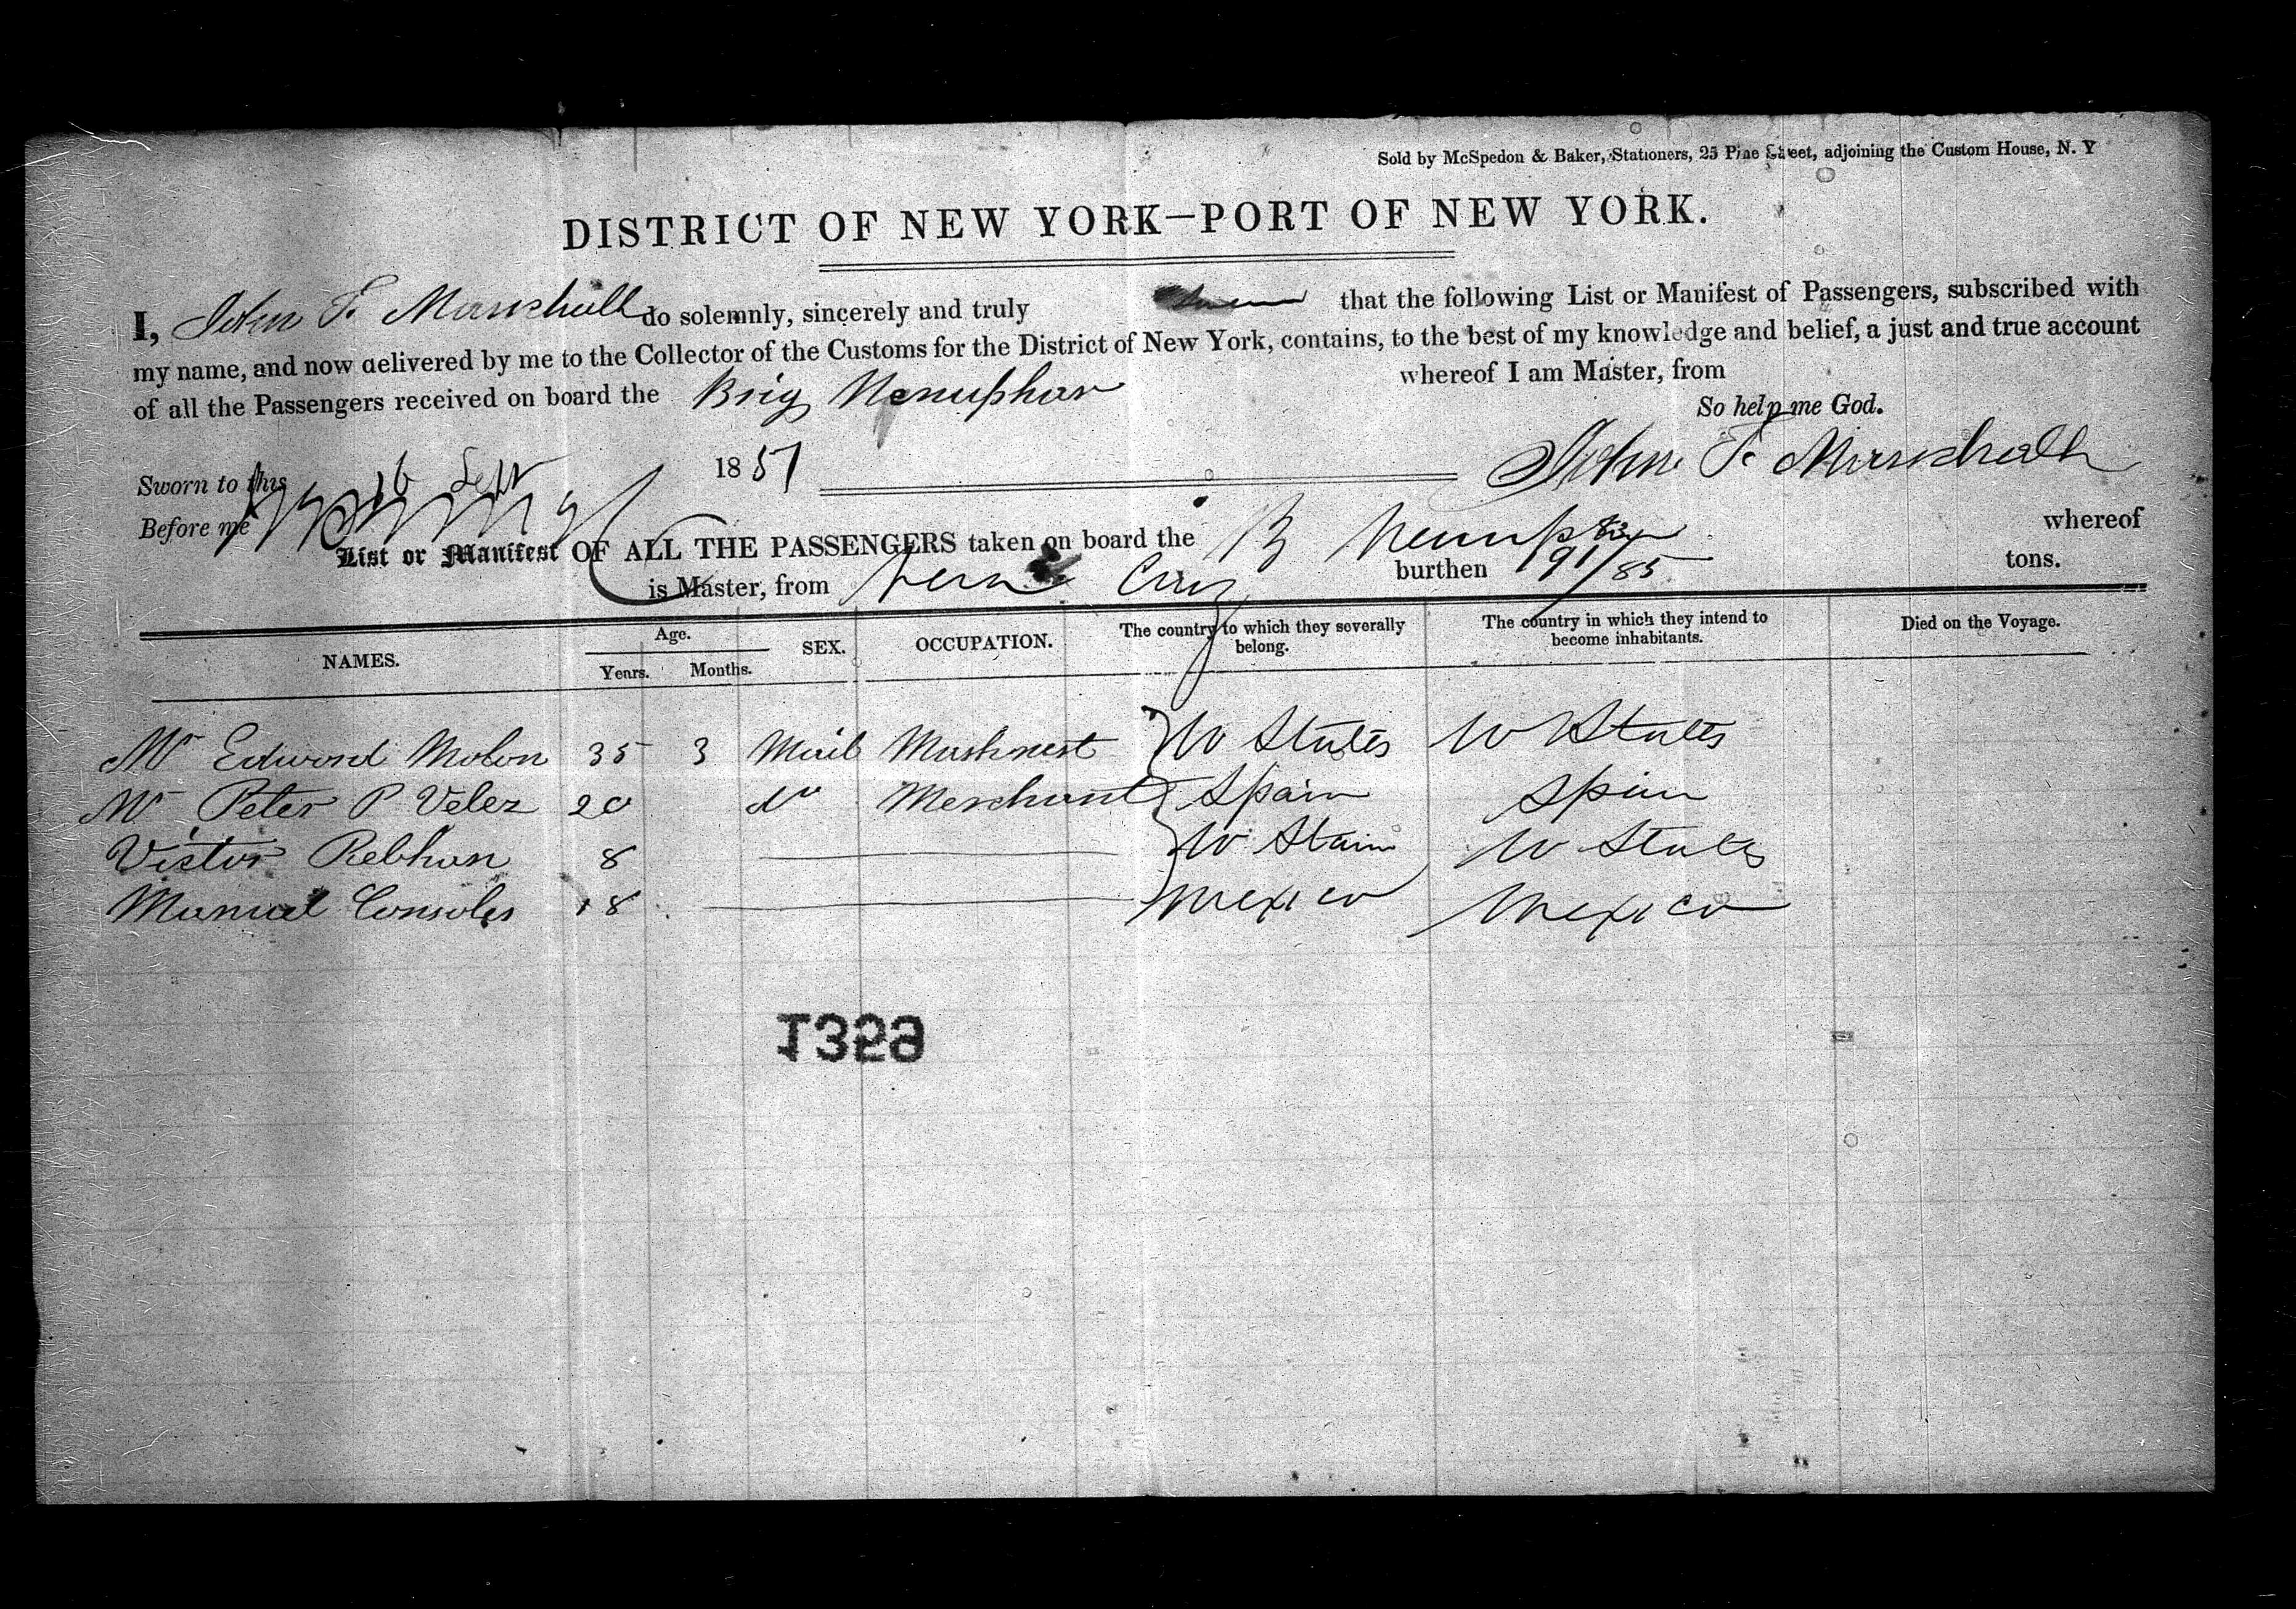 Sold by McSpedon & Baker, Stationers, 25 Pine Street, adjoining the Custom House, N. Y
DISTRICT OF NEW YORK—PORT OF NEW YORK.
I, John F. Marshall do solemnly, sincerely and truly that the following List or Manifest of Passengers, subscribed with
my name, and now delivered by me to the Collector of the Customs for the District of New York, contains, to the best of my knowledge and belief, a just and true account
of all the Passengers received on board the Brig Nenuphar whereof I am Master, from
So help me God.
Sworn to this 16 Sept 1851 John F. Marshall
Before me
List or Manifest OF ALL THE PASSENGERS taken on board the B Nenuphar whereof
is Master, from Vera Cruz burthen 191 83/85 tons.
NAMES. Age. Years. Months. SEX. OCCUPATION. The country to which they severally belong. The country in which they intend to become inhabitants. Died on the Voyage.
Mr Edward Molon 35 3 Mail Mashnest U States U States
Mr Peter P Velez 20 do Merchant Spain Spain
Victor Rebhun 8 U Stain U States
Manuel Consoles 18 Mexico Mexico
1359